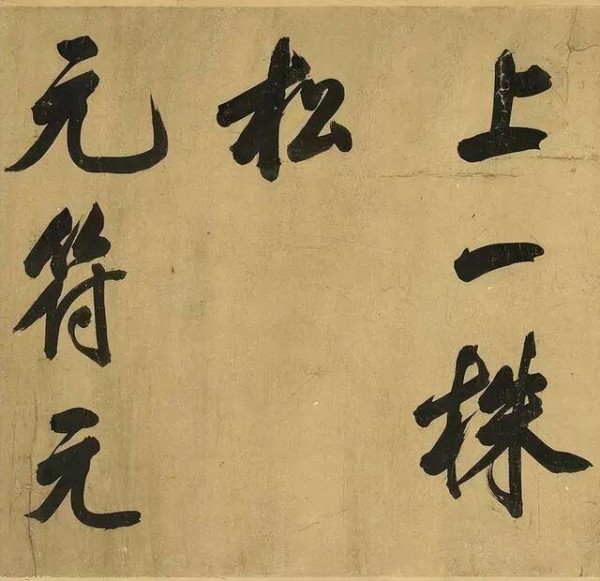 上一株
松
元符元